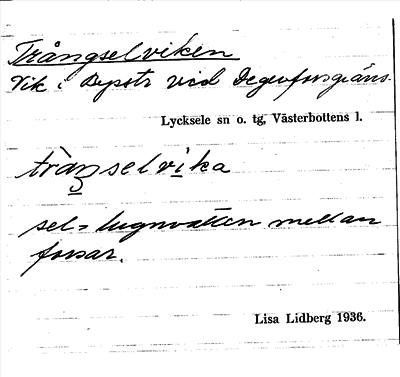 Trångselviken
Vik i Bysotr vid Degerforsgräns.
Lycksele sn o. tg, Västerbottens l.
tràŋselvika
sel = lugnvatten mellan
forsar.
Lisa Lidberg 1936.